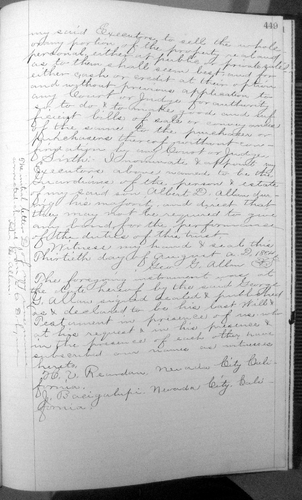 449
my said Executors to sell the whole
or any portion of the property real and
personal either at public or private sale
as to them shall seem best and for
either cash or credit at their option
and without previous application to
any Court or Judge for authority
so to do, & to make good and
sufficient bills of sale or conveyances
of the same to the purchaser or
purchasers thereof without
by any Court or Judge.
I nominate & appoint my
Executors above named to be the
Guardians of the person & estate
of my said son Albert D. Allen
his majority and direct that
they may not be required to give
any bonds for the performance
of the duties of this trust.
Witness my hand & seal this
Thirtieth day of August A.D.
Geo. G. Allan
The foregoing instrument was at
the date hereof by the said George
G. Allan signed sealed & published
as & declared to be his last Will &
Testament in presence of us who
at his request & in his presence &
in the presence of each other have
subscribed our names as witnesses
hereto.
Nevada City Cali-
fornia.
J. Bacigalupi Nevada City. Cali-
fornia